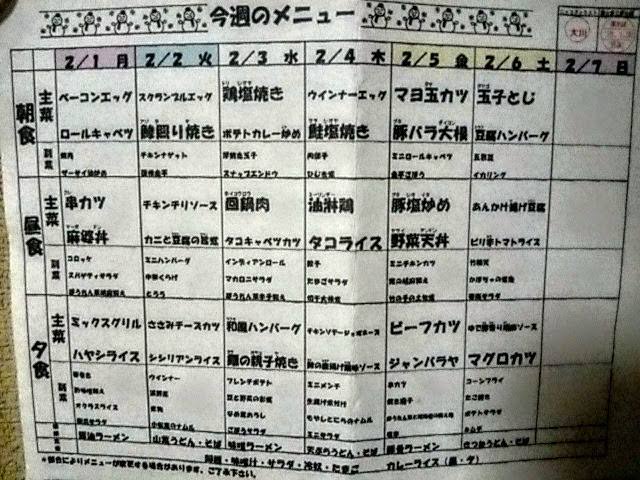 今週のメニュー
大川
2/1 月 2/2 火 2/3 水 2/4 木 2/5 金 2/6 土 2/7 日
朝食
主菜
ベーコンエッグ スクランブルエッグ 鶏塩焼き ウインナーエッグ マヨ玉カツ 玉子とじ
ロールキャベツ 鯵照り焼き ポテトカレー炒め 鮭塩焼き 豚バラ大根 豆腐ハンバーグ
副菜
チキンナゲット 厚焼き玉子 肉団子 ミニロールキャベツ
ザーサイ油炒め スナップエンドウ ひじき煮 金平ごぼう イカリング
昼食
主菜
串カツ チキンチリソース 回鍋肉 油淋鶏 豚塩炒め あんかけ揚げ豆腐
麻婆丼 カニと豆腐の旨煮 タコキャベツカツ タコライス 野菜天丼 ピリ辛トマトライス
副菜
コロッケ ミニハンバーグ インディアンロール 餃子 ミニチキンカツ
スパゲティサラダ 中華くらげ マカロニサラダ たまごサラダ
とろろ 切干大根煮 竹の子の土佐煮
夕食
主菜
ミックスグリル ささみチーズカツ 和風ハンバーグ ビーフカツ
ハヤシライス シシリアンライス 鶏の親子焼き ジャンバラヤ マグロカツ
副菜
ウインナー フレンチポテト ミニメンチ 串カツ コーンフライ
オクラスライス なめ茸おろし もやしとにらのナムル ポテトサラダ
小松菜のナムル ごぼうサラダ ミニサラダ キムチ
醤油ラーメン 山菜うどん・そば 味噌ラーメン 天ぷらうどん・そば 豚骨ラーメン きつねうどん・そば
御飯・味噌汁・サラダ・冷奴・たまご カレーライス(昼・夕)
*都合によりメニューが変更する場合があります。ご了承下さい。